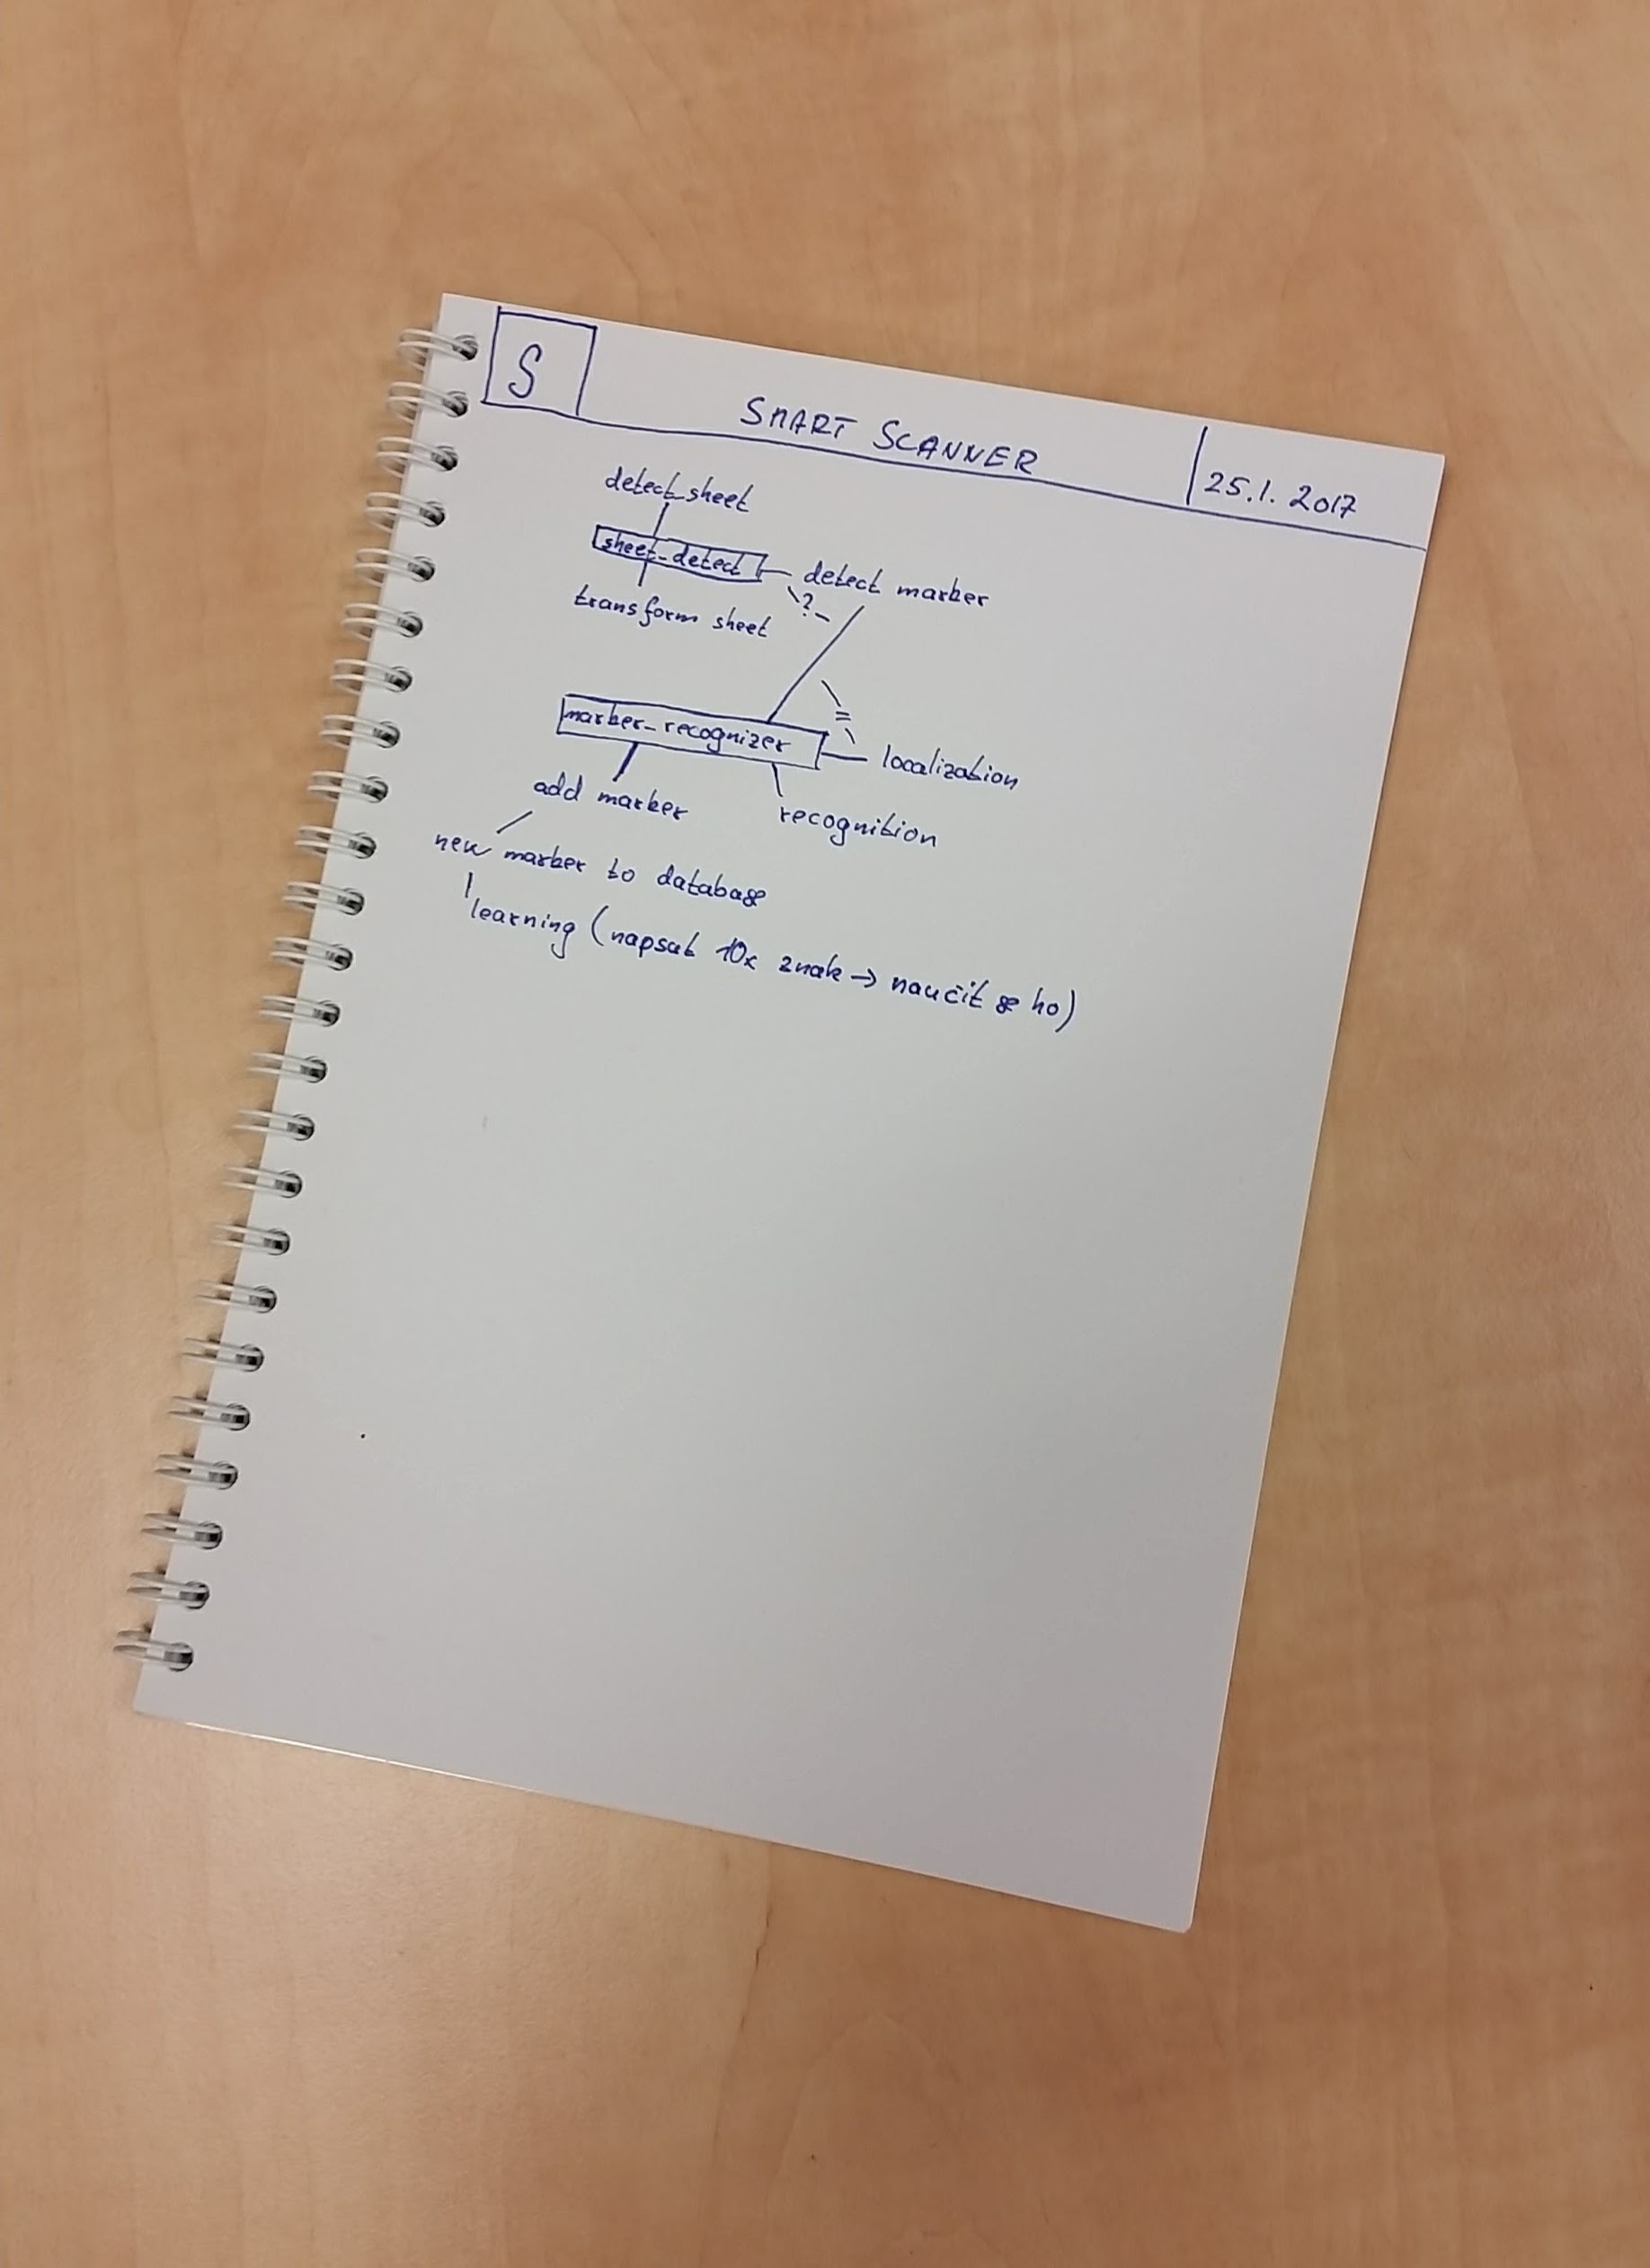 S
SMART SCANNER
25.1. 2017
detect sheet
sheet_detect
detect marker
?
transform sheet
marker_recognizer
=
localization
add marker
recognition
new marker to database
learning (napsat 10x znak → naučit se ho)